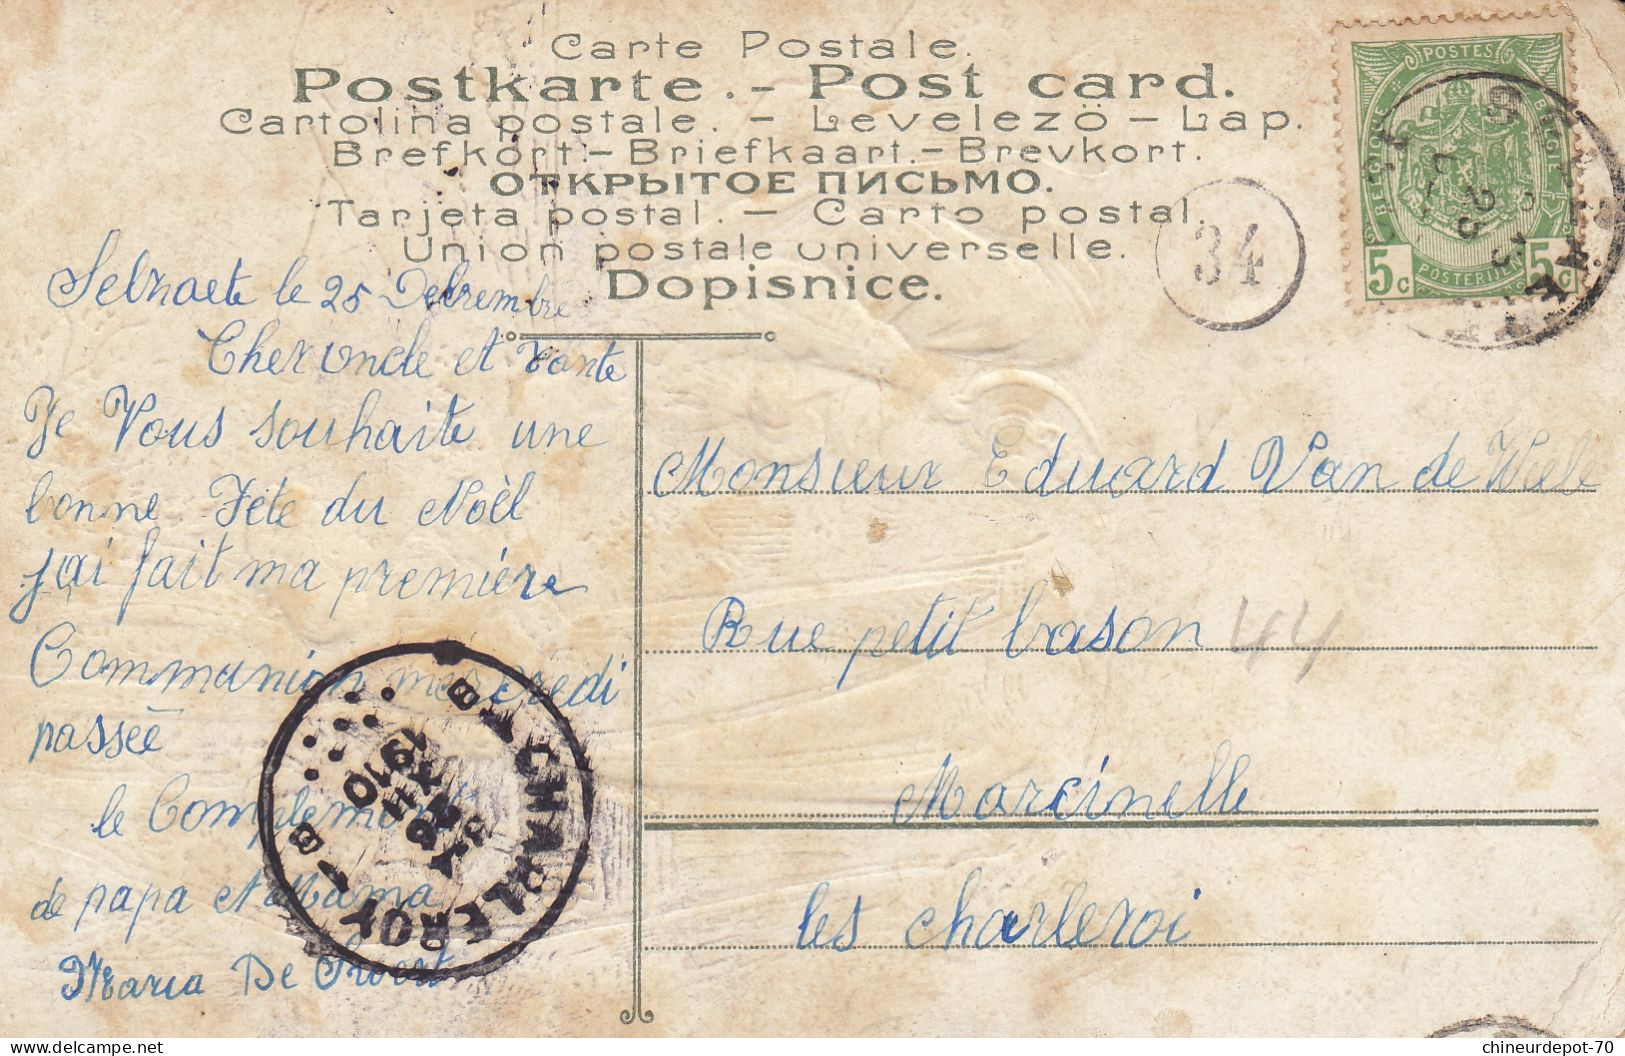 Carte Postale.
Postkarte.- Post card.
Cartolina postale. - Levelezö - Lap.
Brefkort.- Briefkaart.- Brevkort.
ОТКРЫТОЕ ПИСЬМО.
Tarjeta postal. - Carto postal.
Union postale universelle.
Dopisnice.
34
POSTES
BELGIQUE
BELGIË
5c POSTERIJEN 5c
Selzaete le 25 Decembre
Cher oncle et tante
Je Vous souhaite une
bonne Fête du Noèl
j'ai fait ma première
Communion mercredi
passée
le Compliment
de papa et Mama
Maria De
Monsieur Eduard Van de Wiele
Rue petit bason 44
Marcinelle
les charleroi
B 1 CHARLEROY 1 B
1910
chineurdepot-70